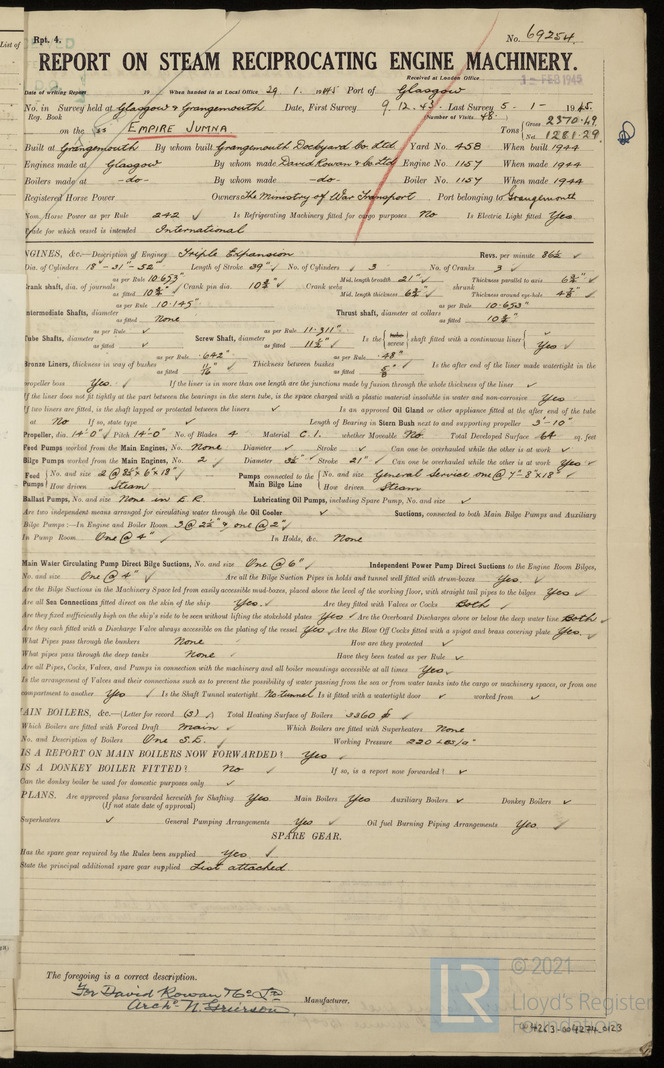 List of
Rpt. 4.
No. 69254.
REPORT ON STEAM RECIPROCATING ENGINE MACHINERY.
Received at London Office
12 FEB 1945
Date of writing Report 19 When handed in at Local Office 29. 1. 1945 Port of Glasgow
No. in Survey held at Glasgow & Grangemouth Date, First Survey 9. 12. 43. Last Survey 5 - 1 - 1945.
Reg. Book Number of Visits 48
on the SS EMPIRE JUMNA Tons Gross 2370.49 Net 1281.29
Built at Grangemouth By whom built Grangemouth Dockyard Co. Ltd. Yard No. 458 When built 1944
Engines made at Glasgow By whom made David Rowan & Co. Ltd Engine No. 1157 When made 1944
Boilers made at -do- By whom made -do- Boiler No. 1157 When made 1944
Registered Horse Power Owners The Ministry of War Transport Port belonging to Grangemouth
Nom. Horse Power as per Rule 242 ✓ Is Refrigerating Machinery fitted for cargo purposes No Is Electric Light fitted Yes
Trade for which vessel is intended International
NGINES, &c.—Description of Engines Triple Expansion Revs. per minute 86½ ✓
Dia. of Cylinders 18" - 31" - 52" Length of Stroke 39" ✓ No. of Cylinders 3 No. of Cranks 3 ✓
Crank shaft, dia. of journals as per Rule 10.653" as fitted 10¾" Crank pin dia. 10¾" Crank webs Mid. length breadth 21" Mid. length thickness 6¾" shrunk Thickness parallel to axis 6¾" Thickness around eye-hole 4⅞"
Intermediate Shafts, diameter as per Rule 10.145" as fitted None Thrust shaft, diameter at collars as per Rule 10.653" as fitted 10¾"
Tube Shafts, diameter as per Rule ✓ as fitted ✓ Screw Shaft, diameter as per Rule 11.311" as fitted 11½" Is the screw shaft fitted with a continuous liner Yes
Bronze Liners, thickness in way of bushes as per Rule .642" as fitted 11/16" Thickness between bushes as per Rule .48" as fitted ⅝" Is the after end of the liner made watertight in the
propeller boss Yes. If the liner is in more than one length are the junctions made by fusion through the whole thickness of the liner ✓
If the liner does not fit tightly at the part between the bearings in the stern tube, is the space charged with a plastic material insoluble in water and non-corrosive Yes
If two liners are fitted, is the shaft lapped or protected between the liners ✓ Is an approved Oil Gland or other appliance fitted at the after end of the tube
at No If so, state type ✓ Length of Bearing in Stern Bush next to and supporting propeller 3'-10"
Propeller, dia. 14'-0" Pitch 14'-0" No. of Blades 4 Material C.I. whether Moveable No. Total Developed Surface 64 sq. feet
Feed Pumps worked from the Main Engines, No. None Diameter ✓ Stroke ✓ Can one be overhauled while the other is at work ✓
Bilge Pumps worked from the Main Engines, No. 2 Diameter 3½" Stroke 21" Can one be overhauled while the other is at work Yes
Feed Pumps No. and size 2 @ 8½" x 6" x 18" How driven Steam Pumps connected to the Main Bilge Line No. and size General Service one @ 7" 8" x 18" How driven Steam
Ballast Pumps, No. and size None in E.R. Lubricating Oil Pumps, including Spare Pump, No. and size ✓
Are two independent means arranged for circulating water through the Oil Cooler ✓ Suctions, connected to both Main Bilge Pumps and Auxiliary
Bilge Pumps:—In Engine and Boiler Room 3 @ 2½" & one @ 2"
In Pump Room One @ 4" In Holds, &c. None
Main Water Circulating Pump Direct Bilge Suctions, No. and size One @ 6" Independent Power Pump Direct Suctions to the Engine Room Bilges,
No. and size One @ 4" Are all the Bilge Suction Pipes in holds and tunnel well fitted with strum-boxes Yes.
Are the Bilge Suctions in the Machinery Space led from easily accessible mud-boxes, placed above the level of the working floor, with straight tail pipes to the bilges Yes
Are all Sea Connections fitted direct on the skin of the ship Yes. Are they fitted with Valves or Cocks Both
Are they fixed sufficiently high on the ship's side to be seen without lifting the stokehold plates Yes Are the Overboard Discharges above or below the deep water line Both
Are they each fitted with a Discharge Valve always accessible on the plating of the vessel Yes Are the Blow Off Cocks fitted with a spigot and brass covering plate Yes.
What Pipes pass through the bunkers None How are they protected ✓
What pipes pass through the deep tanks None Have they been tested as per Rule ✓
Are all Pipes, Cocks, Valves, and Pumps in connection with the machinery and all boiler mountings accessible at all times Yes
Is the arrangement of Valves and their connections such as to prevent the possibility of water passing from the sea or from water tanks into the cargo or machinery spaces, or from one
compartment to another Yes Is the Shaft Tunnel watertight No tunnel Is it fitted with a watertight door ✓ worked from ✓
AIN BOILERS, &c.—(Letter for record (S) ) Total Heating Surface of Boilers 3360
Which Boilers are fitted with Forced Draft Main Which Boilers are fitted with Superheaters None
No. and Description of Boilers One S.E. Working Pressure 220 Lbs/□"
IS A REPORT ON MAIN BOILERS NOW FORWARDED? Yes
IS A DONKEY BOILER FITTED? No If so, is a report now forwarded? ✓
Can the donkey boiler be used for domestic purposes only ✓
PLANS. Are approved plans forwarded herewith for Shafting Yes Main Boilers Yes Auxiliary Boilers ✓ Donkey Boilers ✓
(If not state date of approval)
Superheaters ✓ General Pumping Arrangements Yes Oil fuel Burning Piping Arrangements Yes.
SPARE GEAR.
Has the spare gear required by the Rules been supplied Yes.
State the principal additional spare gear supplied List attached.
The foregoing is a correct description.
For David Rowan & Co. Ltd
Archd. N. Grierson Manufacturer.
LR
© 2021
Lloyd's Register
Foundation
004263-004274-0123